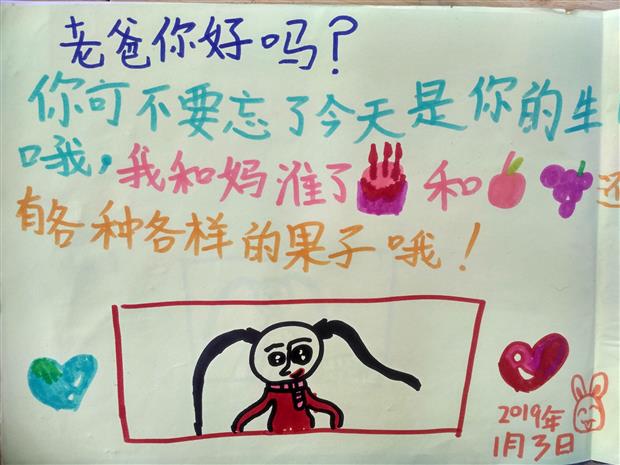 老爸你好吗？
你可不要忘了今天是你的生
哦，我和妈准了和还
有各种各样的果子哦！
2019年
1月3日